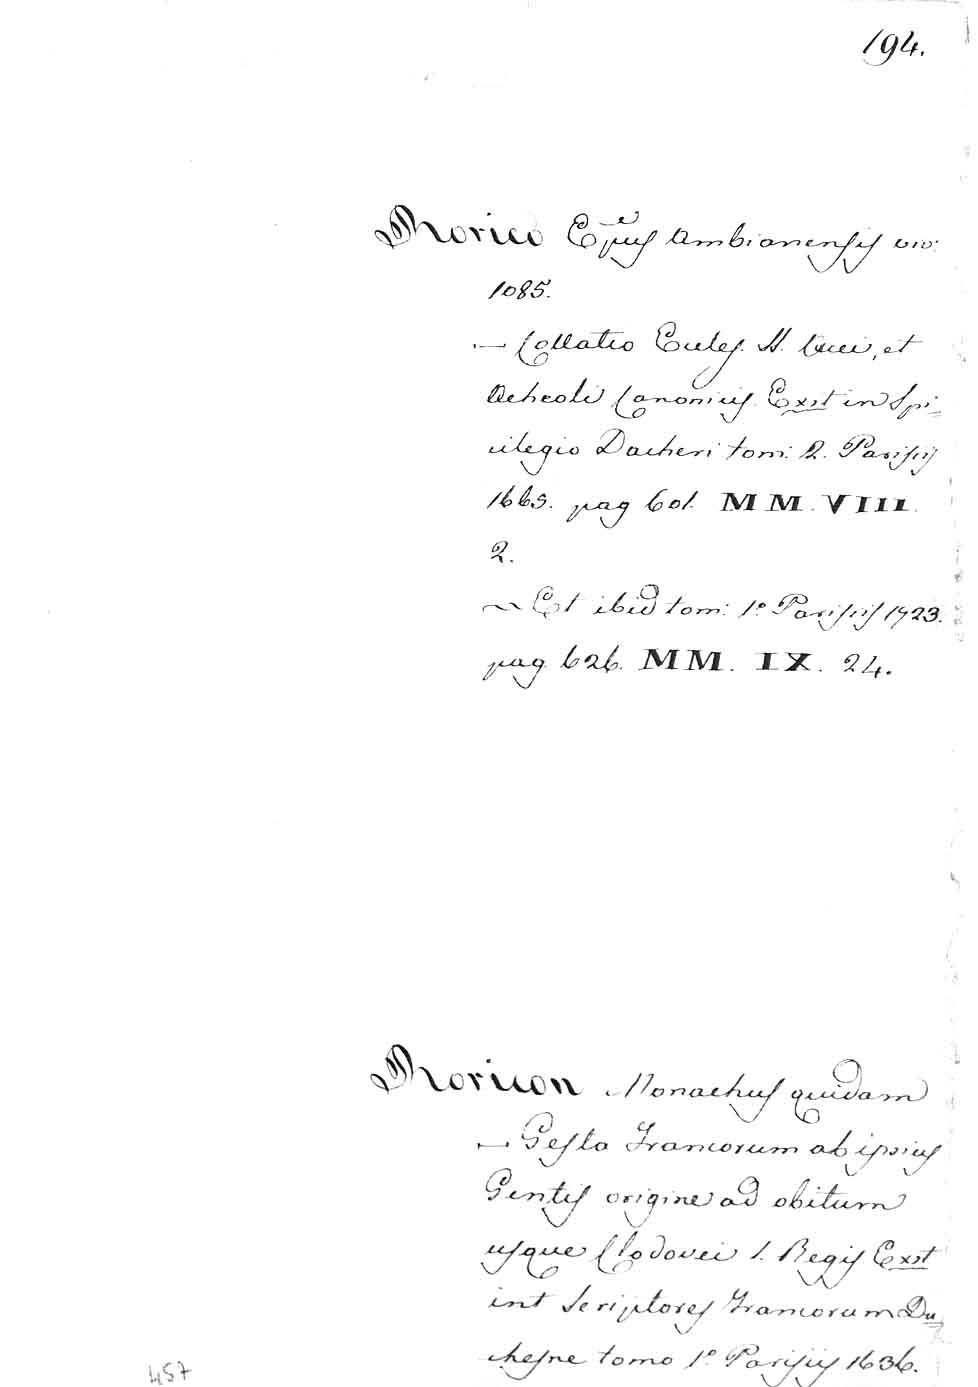 194.
Rorico Epus Ambianensis viv:
1085.
— Collatio Eccles. S. Lucei, et
Acheoli Canonicis. Exst in Spi=
cilegio Dacheri tom: 2. Parisiis
1665. pag 601. MM. VIII.
2.
~ Et ibid tom: 1º Parisiis 1723.
pag. 626. MM. IX. 24.
Roricon Monachus quidam
— Gesta Francorum ab ipsius
Gentis origine ad obitum
usque Clodovei 1. Regis Exst
int Scriptores Francorum Du=
chesne tomo 1º Parisiis 1636.
457